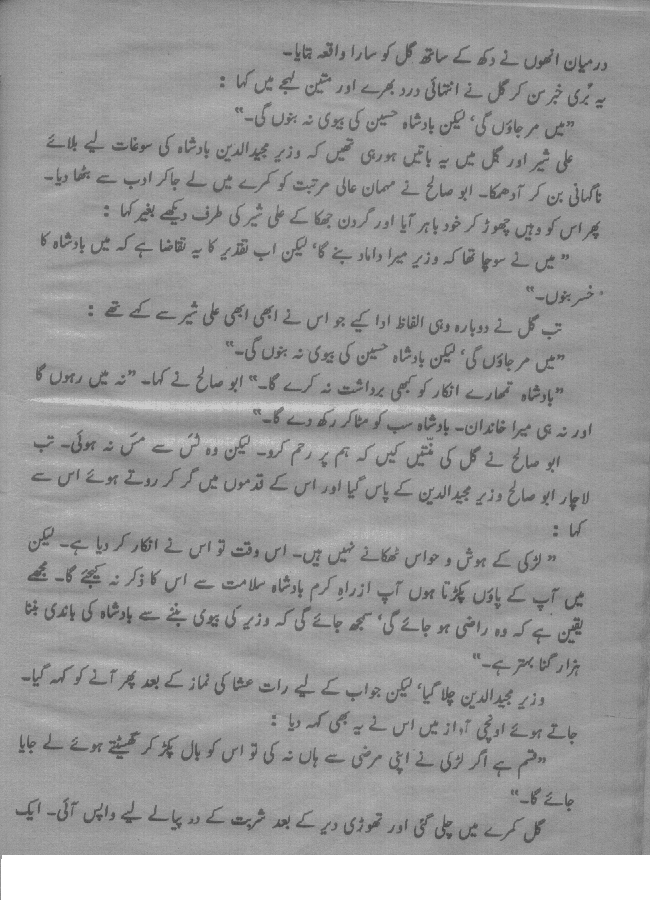 درمیان انھوں نے دکھ کے ساتھ گل کو سارا واقعہ بتایا۔
یہ بُری خبر سن کر گل نے انتہائی درد بھرے اور متین لہجے میں کہا :
”میں مر جاؤں گی‘ لیکن بادشاہ حسین کی بیوی نہ بنوں گی۔“
علی شیر اور گل میں یہ باتیں ہو رہی تھیں کہ وزیر مجیدالدین بادشاہ کی سوغات لیے بلائے
ناگہانی بن کر آدھمکا۔ ابو صالح نے مہمان عالی مرتبت کو کمرے میں لے جاکر ادب سے بٹھا دیا۔
پھر اس کو وہیں چھوڑ کر خود باہر آیا اور گردن جھکا کے علی شیر کی طرف دیکھے بغیر کہا :
”میں نے سوچا تھا کہ وزیر میرا داماد بنے گا‘ لیکن اب تقدیر کا یہ تقاضا ہے کہ میں بادشاہ کا
خسر بنوں۔“
تب گل نے دوبارہ وہی الفاظ ادا کیے جو اس نے ابھی ابھی علی شیر سے کہے تھے :
”میں مر جاؤں گی‘ لیکن بادشاہ حسین کی بیوی نہ بنوں گی۔“
”بادشاہ تمھارے انکار کو کبھی برداشت نہ کرے گا۔“ ابو صالح نے کہا۔ ”نہ میں رہوں گا
اور نہ ہی میرا خاندان۔ بادشاہ سب کو مٹاکر رکھ دے گا۔“
ابو صالح نے گل کی منّتیں کیں کہ ہم پر رحم کرو۔ لیکن وہ ٹس سے مَس نہ ہوئی۔ تب
لاچار ابو صالح وزیر مجیدالدین کے پاس گیا اور اس کے قدموں میں گر کر روتے ہوئے اس سے
کہا :
”لڑکی کے ہوش و حواس ٹھکانے نہیں ہیں۔ اس وقت تو اس نے انکار کر دیا ہے۔ لیکن
میں آپ کے پاؤں پکڑتا ہوں آپ ازراہِ کرم بادشاہ سلامت سے اس کا ذکر نہ کیجئے گا۔ مجھے
یقین ہے کہ وہ راضی ہو جائے گی‘ سمجھ جائے گی کہ وزیر کی بیوی بننے سے بادشاہ کی باندی بننا
ہزار گنا بہتر ہے۔“
وزیر مجیدالدین چلا گیا‘ لیکن جواب کے لیے رات عشا کی نماز کے بعد پھر آنے کو کہہ گیا۔
جاتے ہوئے اونچی آواز میں اس نے یہ بھی کہہ دیا :
”قسم ہے اگر لڑکی نے اپنی مرضی سے ہاں نہ کی تو اس کو بال پکڑ کر گھسیٹتے ہوئے لے جایا
جائے گا۔“
گل کمرے میں چلی گئی اور تھوڑی دیر کے بعد شربت کے دو پیالے لیے واپس آئی۔ ایک